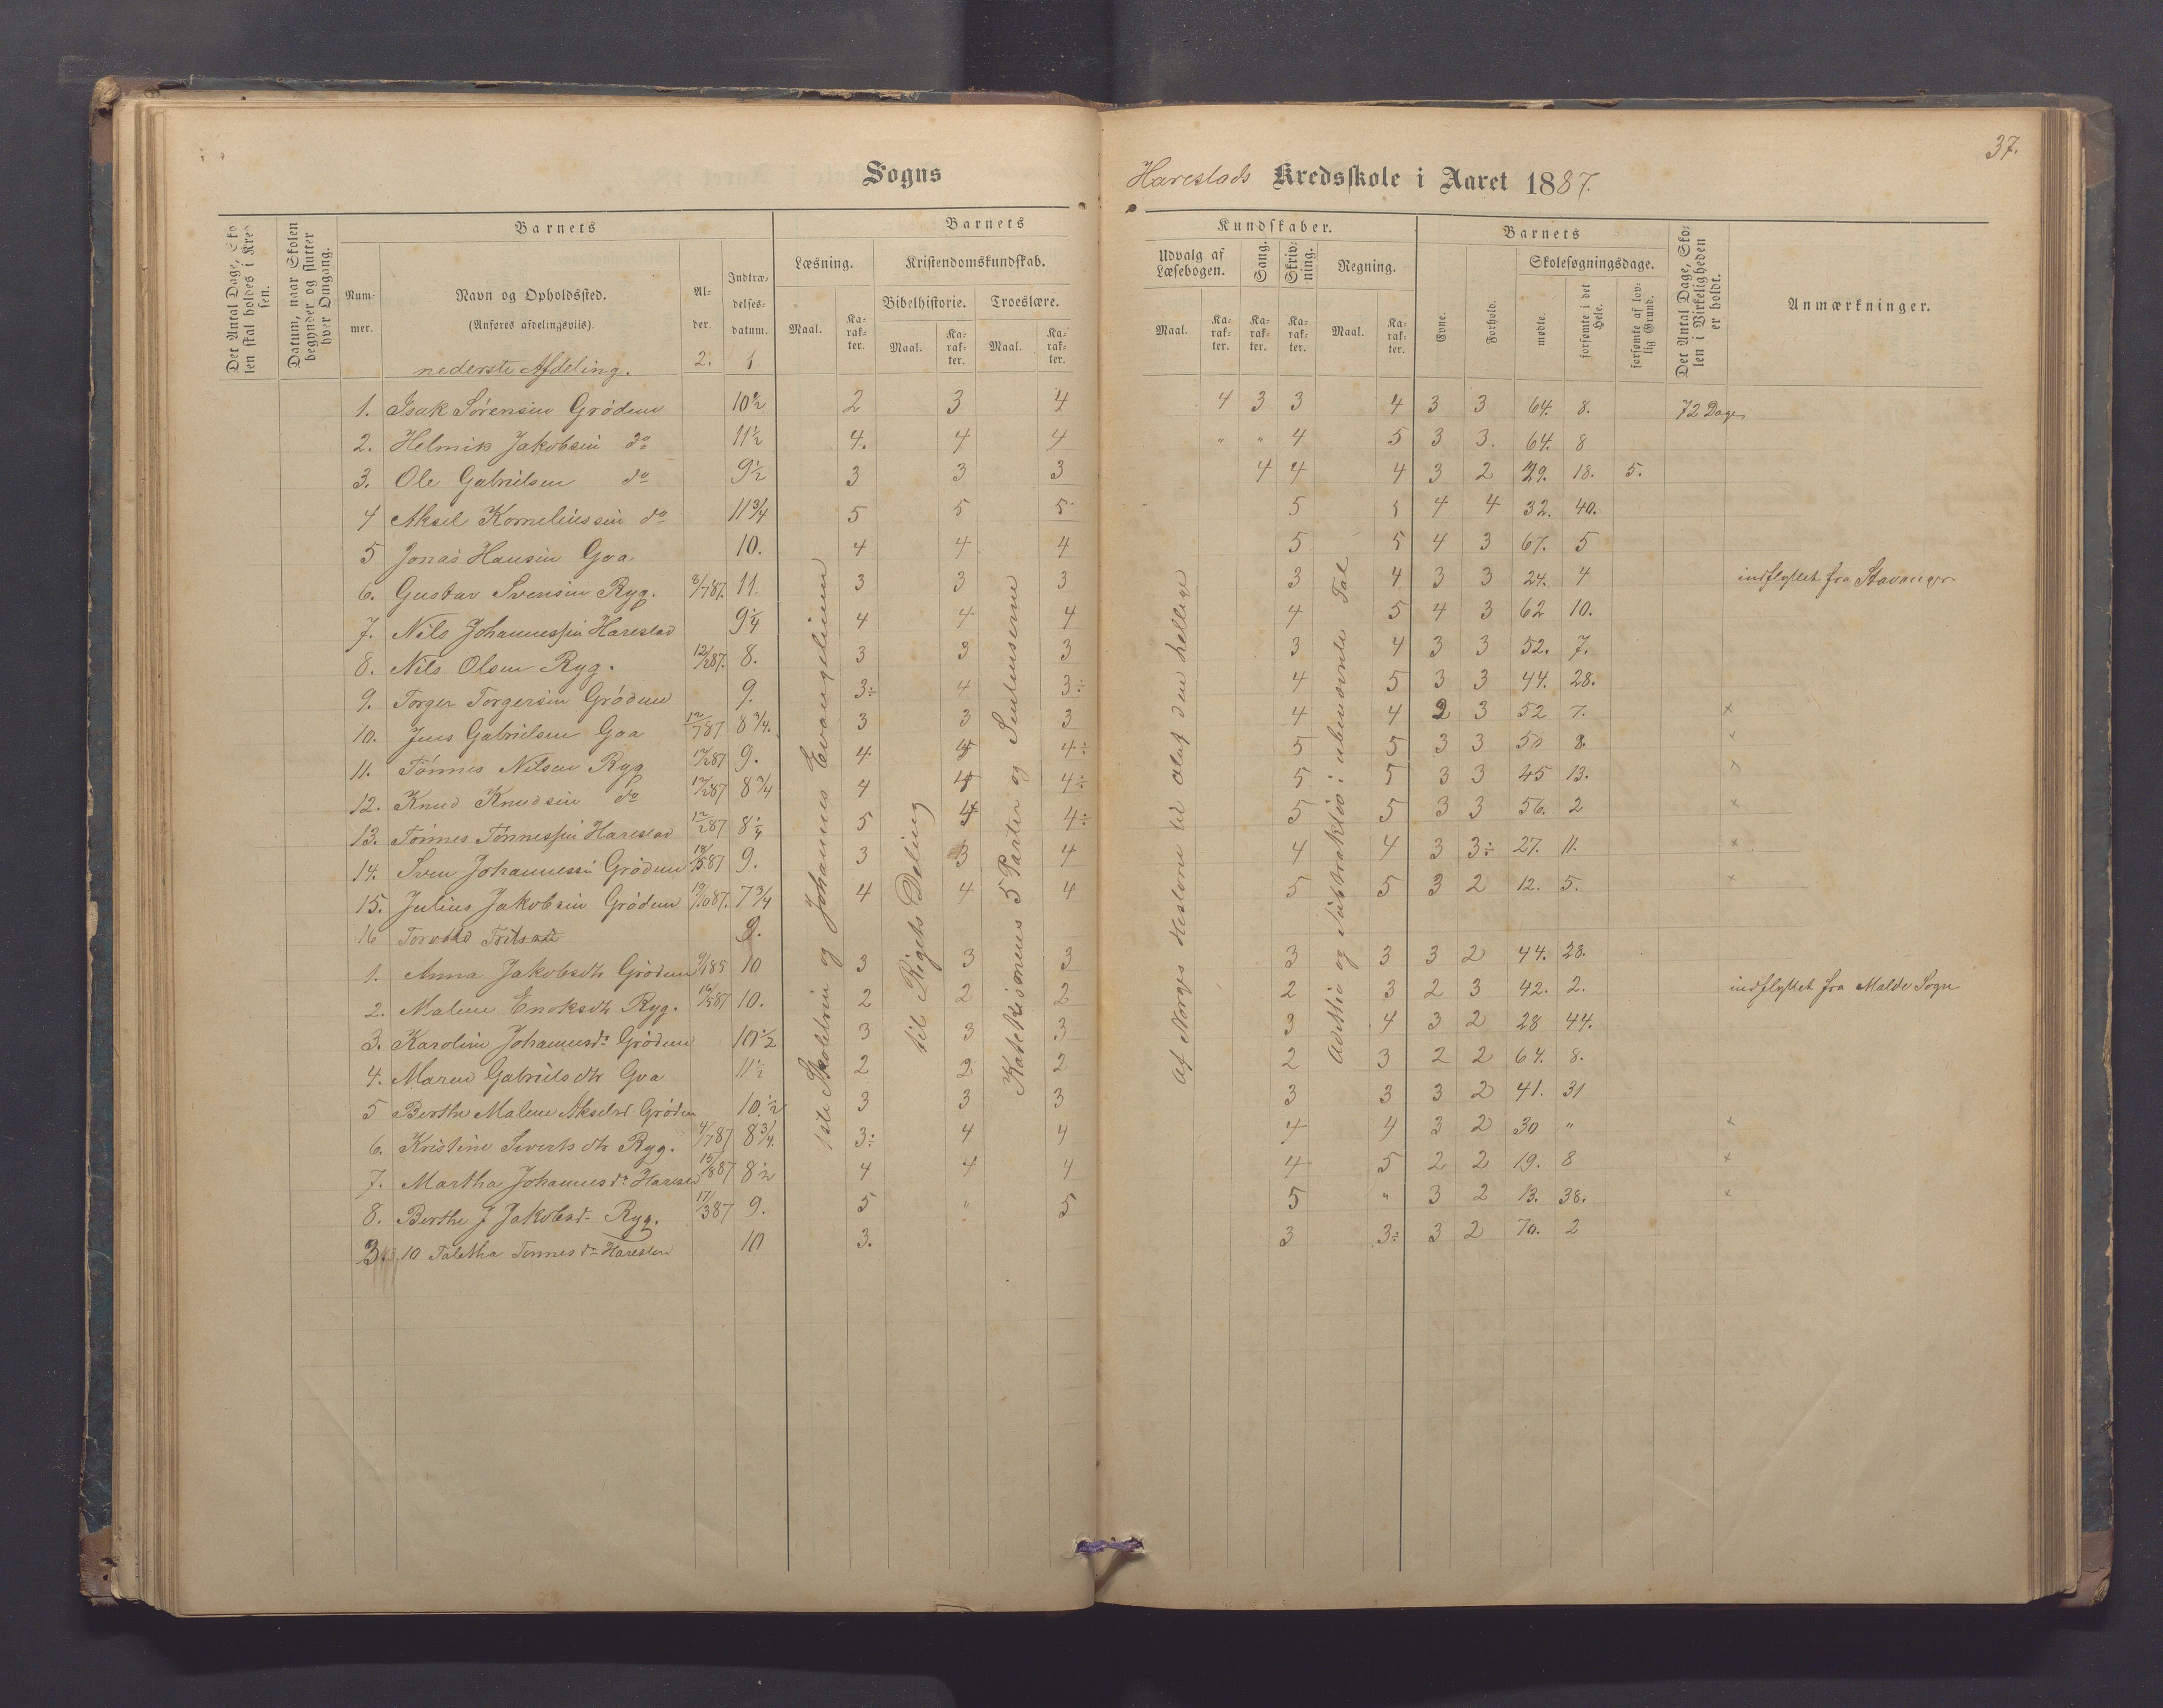 37.
Sogns
Harestads Kredsskole i Aaret 1887.
Det Antal Dage, Skolen skal holdes i Kredsen.
Datum, naar Skolen begynder og slutter hver Omgang.
Barnets
Nummer.
Navn og Opholdssted.
(Anføres afdelingsvis).
nederste Afdeling.
Alder.
2.
Indtrædelsesdatum.
1
Barnets
Læsning.
Maal.
Karakter.
Kristendomskundskab.
Bibelhistorie.
Maal.
Karakter.
Troeslære.
Maal.
Karakter.
Kundskaber.
Udvalg af Læsebogen.
Maal.
Karakter.
Sang.
Karakter.
Skrivning.
Karakter.
Regning.
Maal.
Karakter.
Barnets
Evne.
Forhold.
Skolesøgningsdage.
mødte.
forsømte i det Hele.
forsømte af lovlig Grund.
Det Antal Dage, Skolen i Virkeligheden er holdt.
Anmærkninger.
1. Isak Sörensen Grödem 10½ 2 3 4 4 3 3 4 3 3 64. 8. 72 Dage
2. Helmik Jakobsen do 11½ 4. 4 4 " " 4 5 3 3. 64. 8
3. Ole Gabrielsen do 9½ 3 3 3 4 4 4 3 2 29. 18. 5.
4 Aksel Korneliussen do 11¾ 5 5 5 5 5 4 4 32. 40.
5 Jonas Hansen Goa 10. 4 4 4 5 5 4 3 67. 5
6. Gustav Svensen Ryg. 2/7 87. 11. 3 3 3 3 4 3 3 24. 4 indflyttet fra Stavanger
7. Nils Johannessen Harestad 9¼ 4 4 4 4 5 4 3 62 10.
8. Nils Olsen Ryg. 12/2 87. 8. 3 3 3 3 4 3 3 52. 7.
9. Torger Torgersen Grödem 9. 3÷ 4 3÷ 4 5 3 3 44. 28.
10. Jens Gabrielsen Goa 12/7 87 8¾. 3 3 3 4 4 2 3 52 7. x
11. Tönnes Nilsen Ryg 12/2 87 9. 4 4 4÷ 5 5 3 3 50 8.
12. Knud Knudsen do 12/2 87 8¾ 4 4 4÷ 5 5 3 3 45 13.
13. Tönnes Tönnessen Harestad 12/2 87 8¼ 5 4 4÷ 5 5 3 3 56. 2 x
14. Sven Johannessen Grödem 87 9. 3 3 4 4 4 3 3÷ 27. 11. x
15. Julius Jakobsen Grödem 87. 7¾ 4 4 4 5 5 3 2 12. 5. x
16 Torvald 9.
1. Anna Jakobsdtr Grödem 85 10 3 3 3 3 3 3 2 44. 28.
2. Malene Enoksdtr Ryg. 16/5 87 10. 2 2 2 2 3 2 3 42. 2. indflyttet fra Malde Sogn
3. Karoline Johannesdr Grödem 10½ 3 3 3 3 4 3 2 28 44.
4. Maren Gabrielsdtr Goa 11½ 2 2 2 2 3 2 2 64. 8.
5 Berthe Malene Akselsd Grödem 10.½ 3 3 3 3 3 3 2 41. 31
6. Kristine Sivertsdtr Ryg. 4/7 87 8¾. 3÷ 4 4 4 4 3 2 30 " x
7. Martha Johannesdr Harestad 87 8½ 4 4 4 4 5 2 2 19. 8 x
8. Berthe J Jakobsd Ryg. 17/3 87 9. 5 " 5 5 " 3 2 13. 38. x
10 Taletha Tönnesdr Harestad 10 3. 3 3÷ 3 2 70. 2
1ste Skoletrin og Johannes Evangelium
til Rigets Deling
Katekismenes 5 Parter og Sentenserne
Af Norges Historie til Olaf den hellige
Additie og Subtraktio i ubenævnte Tal